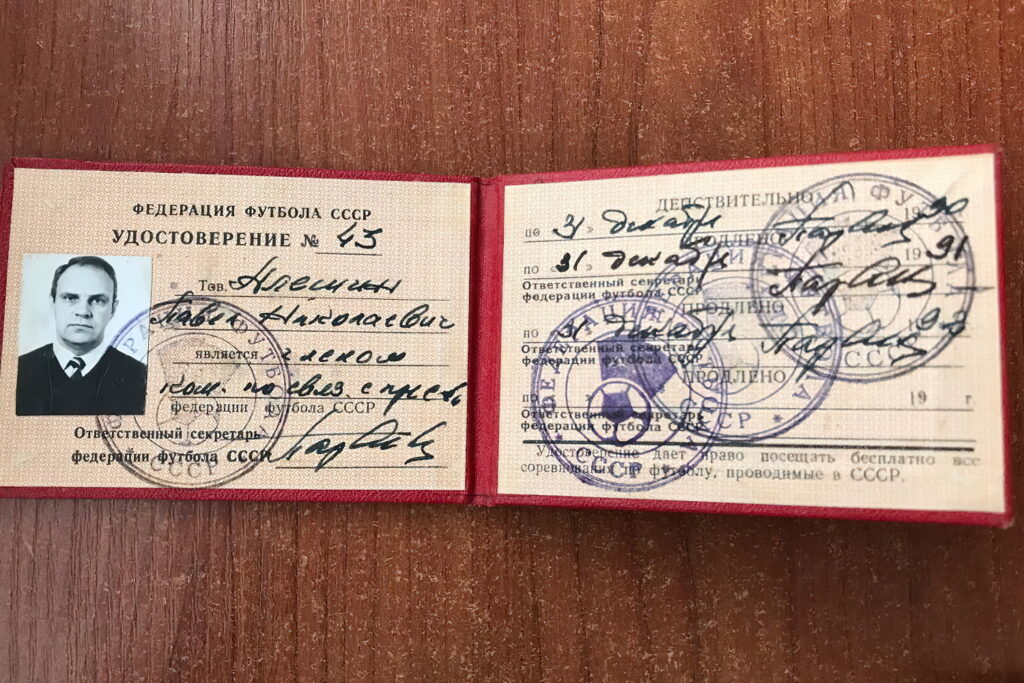 ФЕДЕРАЦИЯ ФУТБОЛА СССР
УДОСТОВЕРЕНИЕ № 43
Тов. Алешин
Павел Николаевич
является членом
Ком. по связ. с прессой
федерации футбола СССР
Ответственный секретарь
федерации футбола СССР
ДЕЙСТВИТЕЛЬНО
по 31 » декабря 1990
ПРОДЛЕНО
по «31 » декабря 1991
Ответственный секретарь
федерации футбола СССР
ПРОДЛЕНО
по «31 » декабря
Ответственный секретарь
федерации футбола СССР
ПРОДЛЕНО
по 19 г.
Ответственный секретарь
федерации футбола СССР
Удостоверение дает право посещать бесплатно все
соревнования по футболу, проводимые в СССР.